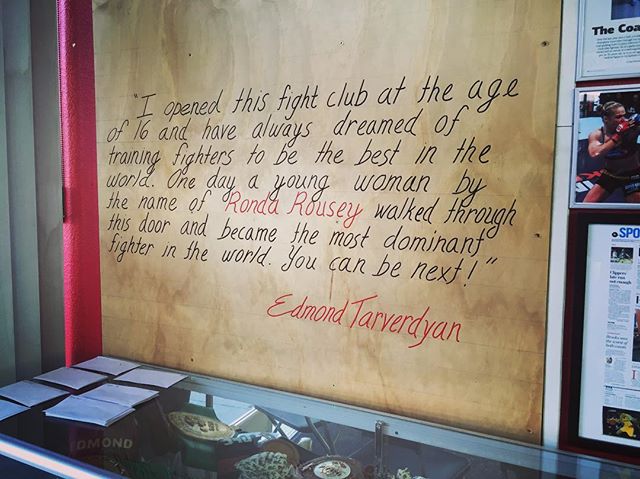 "I opened this fight club at the age
of 16 and have always dreamed of
training fighters to be the best in the
world. One day a young woman by
the name of Ronda Rousey walked through
this door and became the most dominant
fighter in the world. You can be next!"
Edmond Tarverdyan
The Coa
SPO
EDMOND